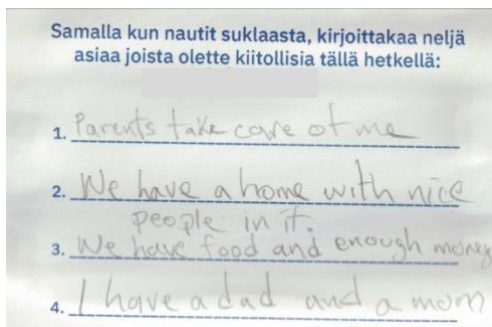 Samalla kun nautit suklaasta, kirjoittakaa neljä
asiaa joista olette kiitollisia tällä hetkellä:
1. Parents take care of me
2. We have a home with nice
people in it.
3. We have food and enough money
4. I have a dad and a mom